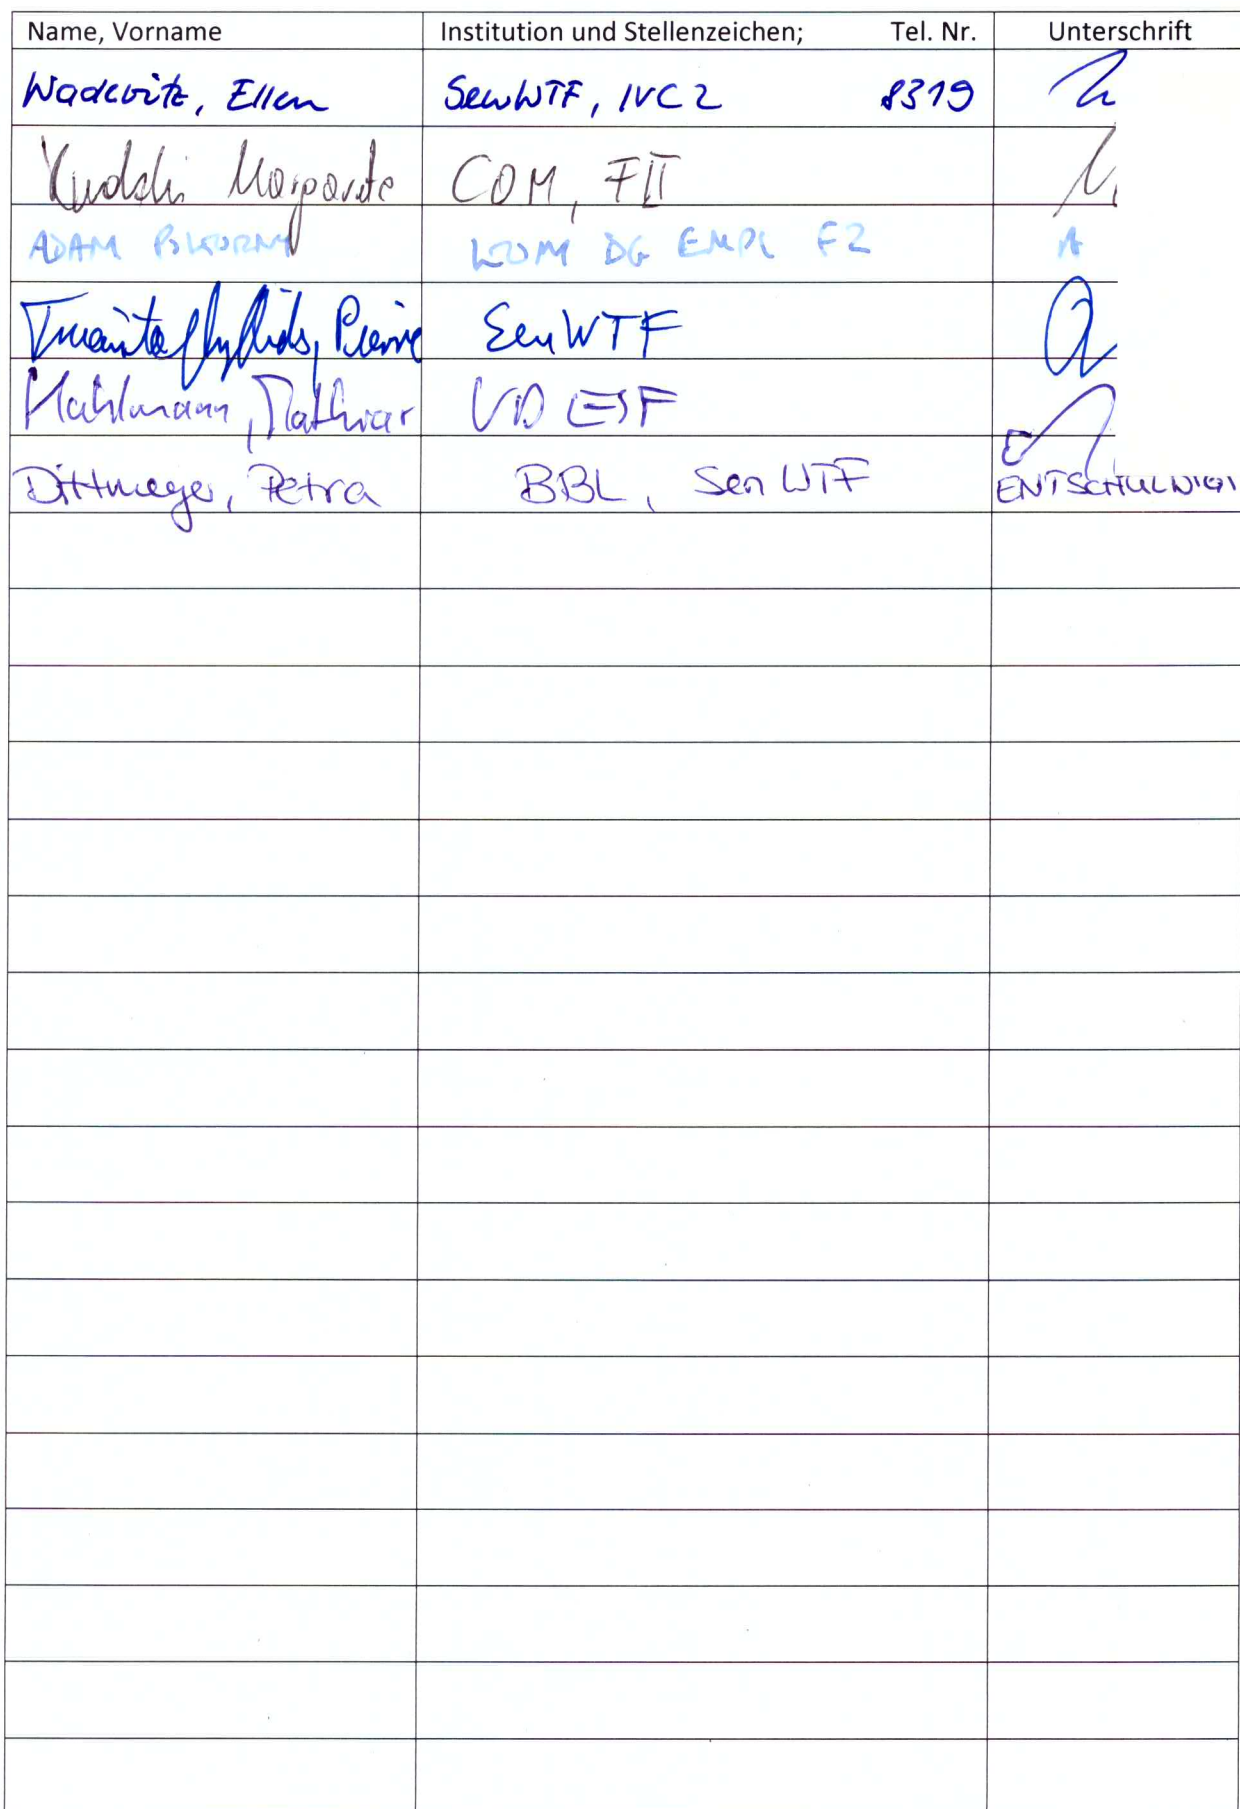 Name, Vorname Institution und Stellenzeichen; Tel. Nr. Unterschrift
Wadewitz, Ellen SenWTF, IVC 2 8319
Margarete COM, FII
ADAM POKORNY KOM DG EMPL F2 A
Triantaphyllides, Pierre SenWTF
Mahlmann, Mathiar VD ESF
Dittmeyer, Petra BBL, Sen WTF ENTSCHULDIGT